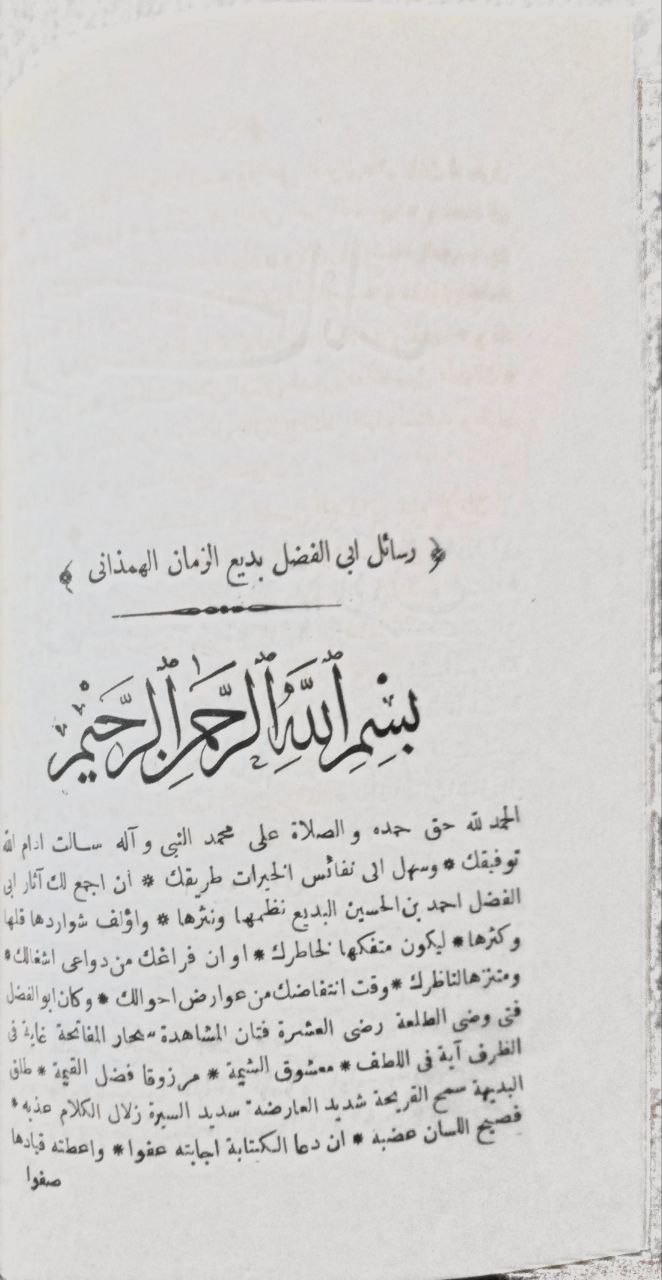 ﴿ رسائل ابى الفضل بديع الزمان الهمذانى ﴾
بِسْمِ اللَّهِ الرَّحْمٰنِ الرَّحِيْمِ
الحمد لله حق حمده و الصلاة على محمد النبى و آله سـالت ادام الله
توفيقك * وسهل الى نفائس الخيرات طريقك * ان اجمع لك آثار ابى
الفضل احمد بن الحسين البديع نظمها ونثرها * واؤلف شواردها قلها
وكثرها * ليكون متفكها لخاطرك * اوان فراغك من دواعى اشغالك *
ومتنزها لناظرك * وقت انتفاضك من عوارض احوالك * وكان ابو الفضل
فتى وضى الطلعة رضى العشرة فتان المشاهدة سحار المفاتحة غاية فى
الظرف آية فى اللطف * معشوق الشيمة * مرزوقا فضل القيمة * طلق
البديهة سمح القريحة شديد العارضه * سديد السيرة زلال الكلام عذبه *
فصيح اللسان عضبه * ان دعا الكتابة اجابته عفوا * واعطته قيادها
صفوا